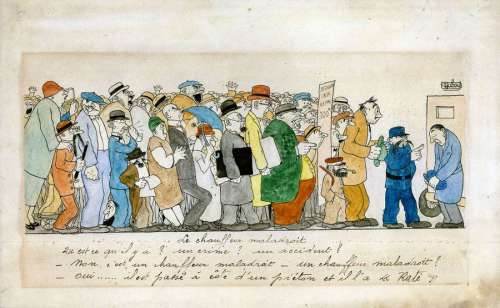 Le chauffeur maladroit
Qu'est ce qu'il y a ? un crime ? un accident ?
- Non, c'est un chauffeur maladroit - un chauffeur maladroit ?
- oui ..... il est passé à côté d'un piéton et il l'a Raté